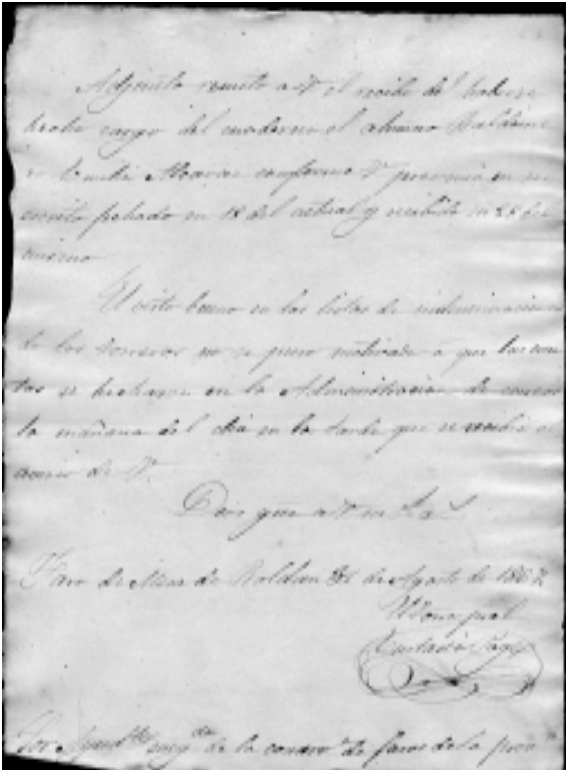 Adjunto remito a V. el recibo del haberse
hecho cargo del cuaderno el alumno
conforme V. prevenia en su
escrito fechado en 18 del actual y recibido en 28 del
mismo
El visto bueno en las listas de indemnizaciones
de los torreros no se puso motivado á que las cuen
tas se hecharon en la Administracion de correos
la mañana del dia en la tarde que se recibió el
de V.
Dios gue a V. m. a.
Faro de Mesa de Roldan de Agosto de 186
El principal
Sor Ayud.te de la de faros de la prov